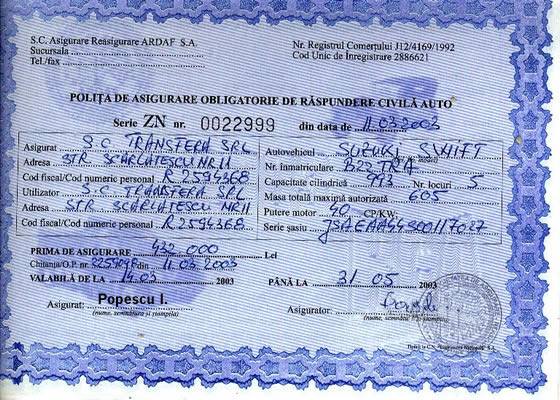 S.C. Asigurare Reasigurare ARDAF S.A.
Sucursala
Tel./fax
Nr. Registrul Comerțului J12/4169/1992
Cod Unic de Înregistrare 2886621
POLIȚA DE ASIGURARE OBLIGATORIE DE RĂSPUNDERE CIVILĂ AUTO
Serie ZN nr. 0022999 din data de 11.03.2003
Asigurat S.C. TRANSFERA SRL
Adresa STR SCARLATESCU NR 11
Cod fiscal/Cod numeric personal R 2594368
Utilizator S.C. TRANSFERA SRL
Adresa STR SCARLATESCU NR 11
Cod fiscal/Cod numeric personal R 2594368
Autovehicul SUZUKI SWIFT
Nr. înmatriculare B25TRA
Capacitate cilindrică 993 Nr. locuri 5
Masa totală maximă autorizată 605
Putere motor 40 CP/KW
Serie șasiu
PRIMA DE ASIGURARE 432 000 Lei
Chitanța/O.P. nr. din 11.03.2003
VALABILĂ DE LA 14.03 2003 PÂNĂ LA 31/05 2003
Asigurat: Popescu I.
(nume, semnătura și ștampila)
Asigurator:
(nume, semnătura și ștampila)